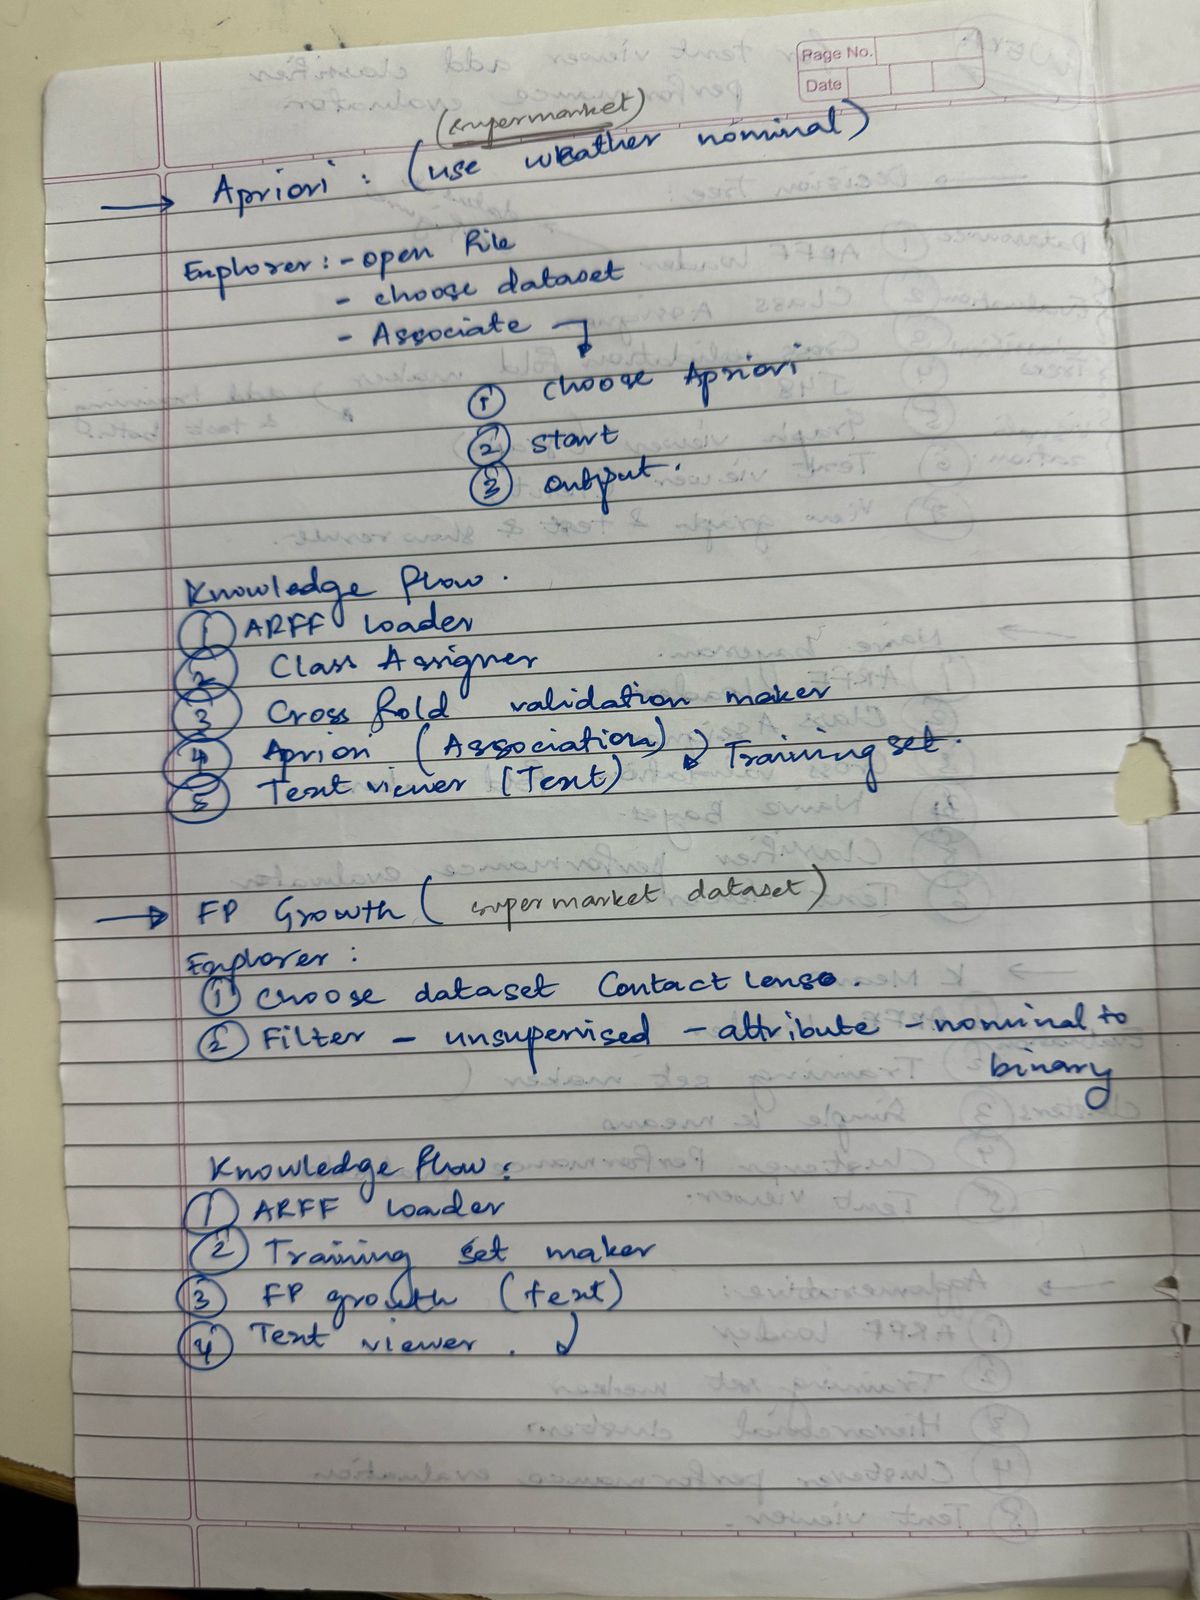 Page No.
Date
(supermarket)
→ Apriori : (use weather nominal)
Explorer :- open file
- choose dataset
- Associate
① choose Apriori
② start
③ output.
Knowledge flow.
① ARFF loader
② Class Assigner
③ Cross fold validation maker
④ Apriori (Association) Training set.
⑤ Text viewer (Text)
→ FP Growth (supermarket dataset)
Explorer :
① choose dataset Contact lense.
② Filter - unsupervised - attribute - nominal to
binary
Knowledge flow:
① ARFF loader
② Training set maker
③ FP growth (text)
④ Text viewer.